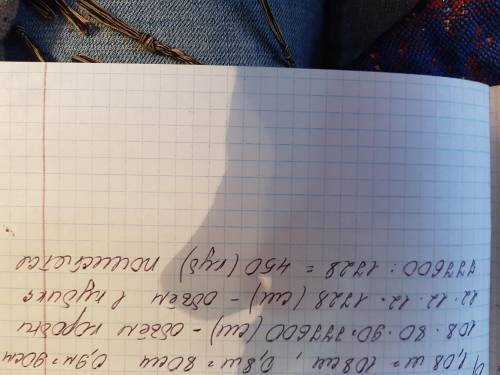 1,08 м = 108 см, 0,8 м = 80 см 0,9 м = 90 см
108 · 80 · 90 = 777600 (см) - объём коробки
12 · 12 · 12 = 1728 (см) - объём 1 кубика
777600 : 1728 = 450 (куб) поместится